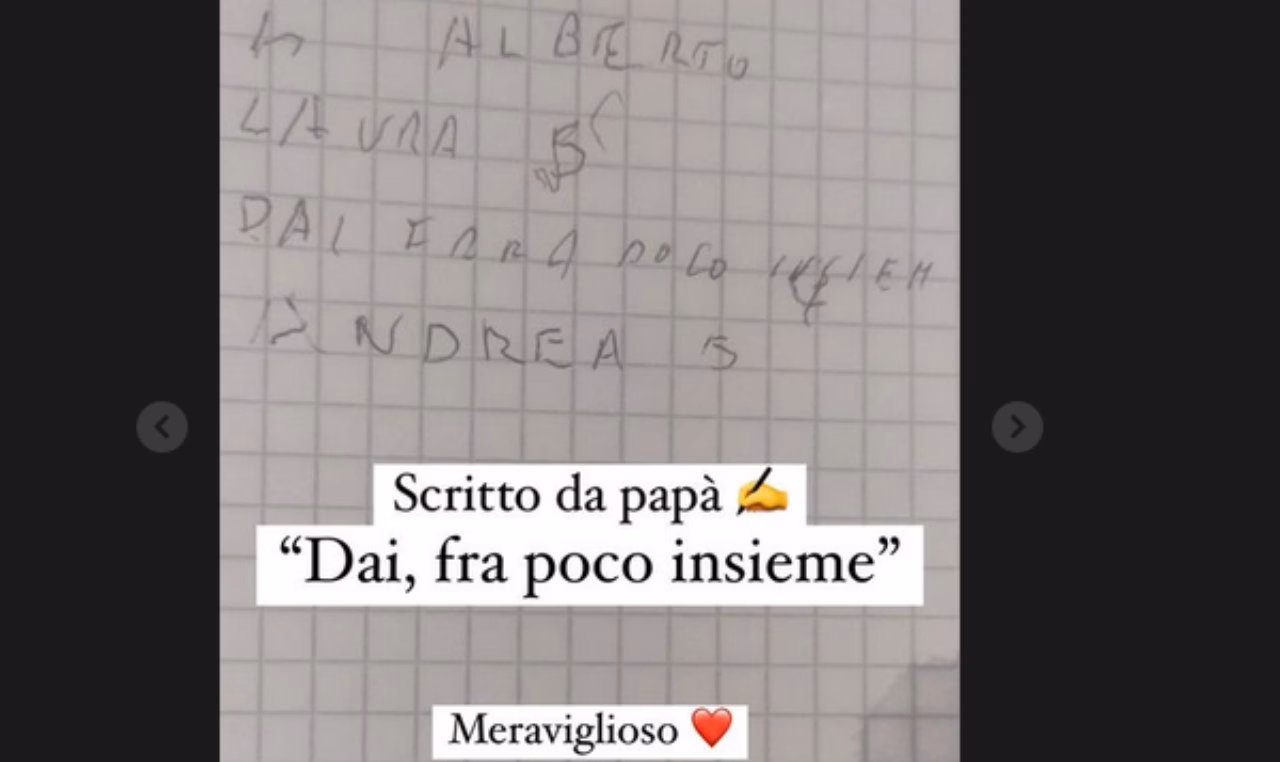 ALBERTO
LAURA
DAI FRRA POCO INSIEM
ANDREA
Scritto da papà ✍️
“Dai, fra poco insieme”
Meraviglioso ❤️